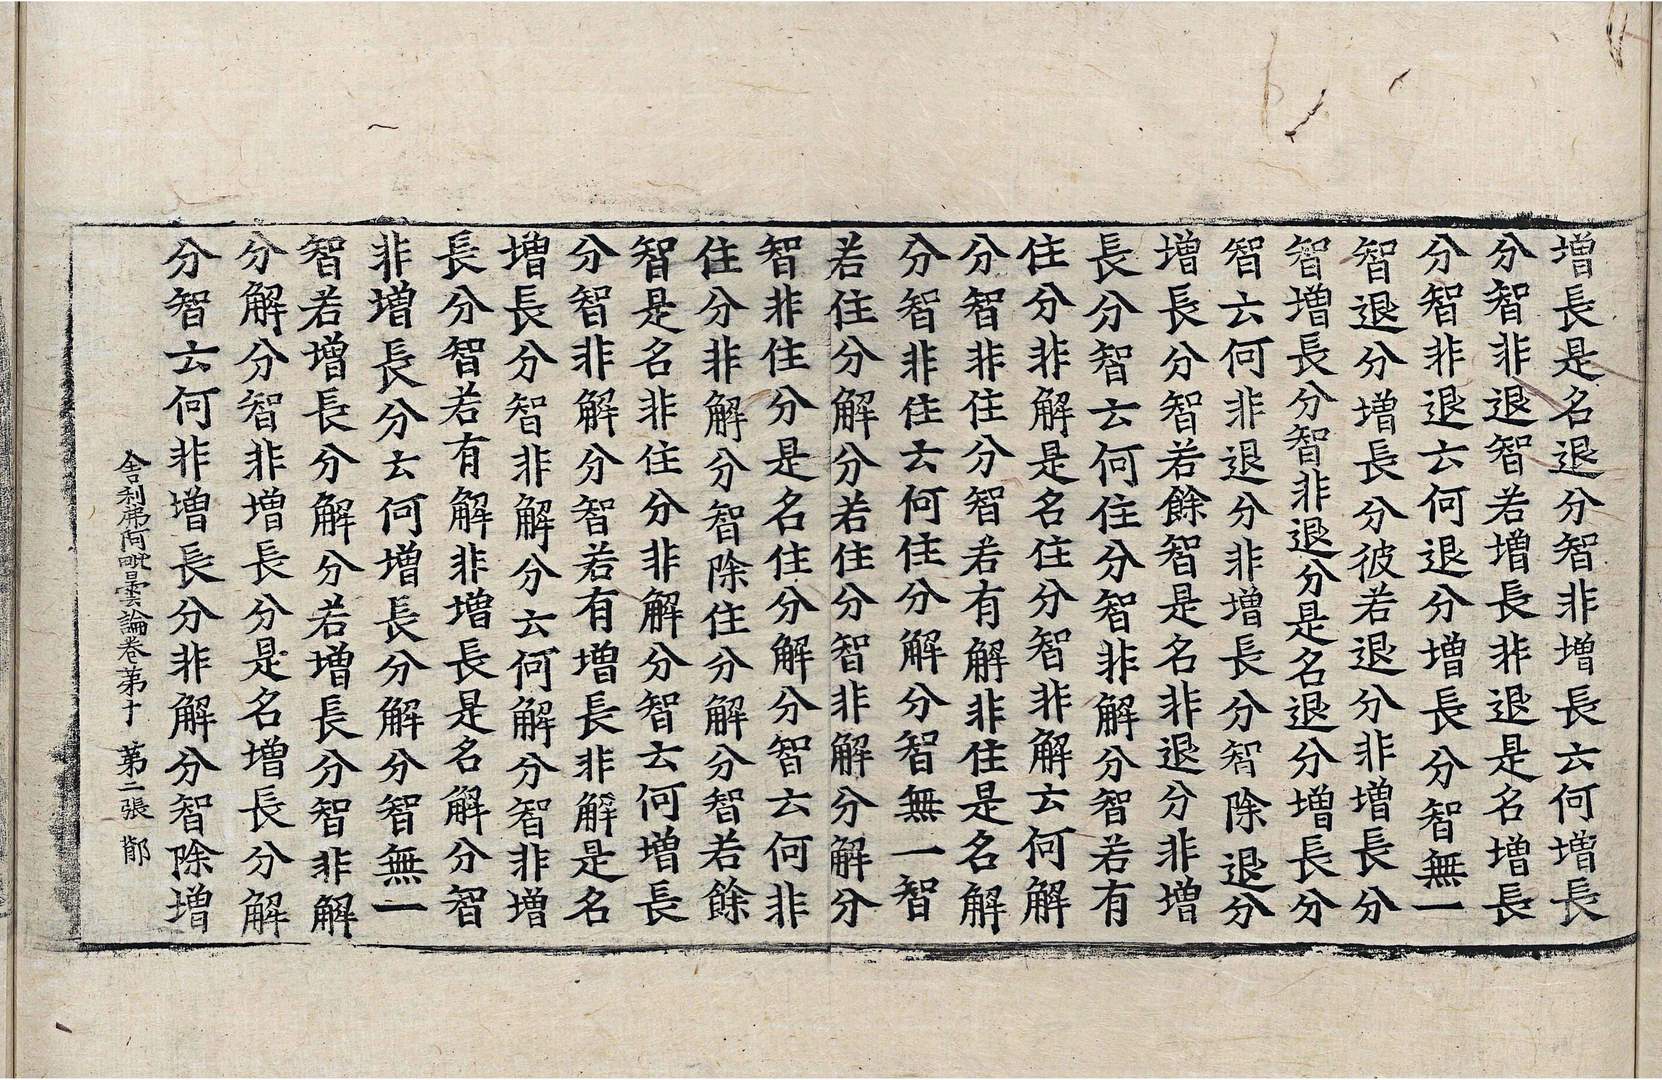 增長是名退分智非增長云何增長
分智非退智若增長非退是名增長
分智非退云何退分增長分智無一
智退分增長分彼若退分非增長分
智增長分智非退分是名退分增長分
智云何非退分非增長分智除退分
增長分智若餘智是名非退分非增
長分智云何住分智非解分智若有
住分非解是名住分智非解云何解
分智非住分智若有解非住是名解
分智非住云何住分解分智無一智
若住分解分若住分智非解分解分
智非住分是名住分解分智云何非
住分非解分智除住分解分智若餘
智是名非住分非解分智云何增長
分智非解分智若有增長非解是名
增長分智非解分云何解分智非增
長分智若有解非增長是名解分智
非增長分云何增長分解分智無一
智若增長分解分若增長分智非解
分解分智非增長分是名增長分解
分智云何非增長分非解分智除增
舍利弗阿毗曇論卷第十 第二張 節